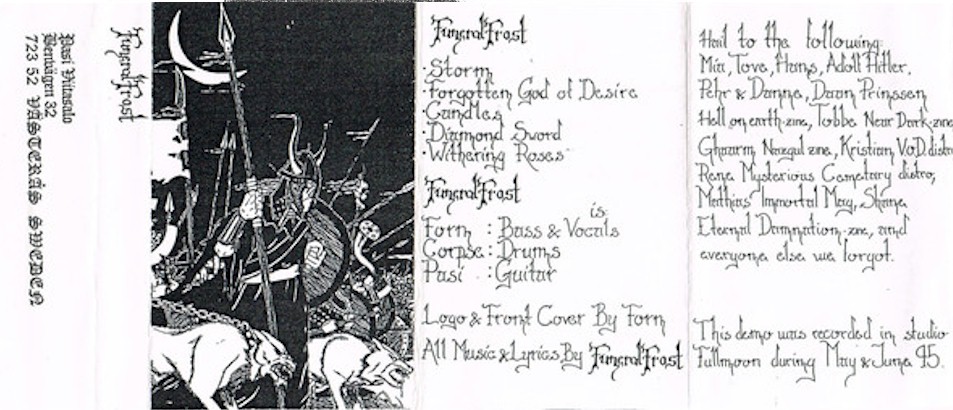 Pasi Viitasalo
32
723 52 VÄSTERÅS SWEDEN
FuneralFrost
FuneralFrost
·Storm
·Forgotten God of Desire
·Candles
·Diamond Sword
·Withering Roses
FuneralFrost
is:
Form : Bass & Vocals
Corpse : Drums
Pasi : Guitar
Logo & Front Cover By Form
All Music & Lyrics By FuneralFrost
Hail to the following:
Mia, Tove, Hans, Adolf Hitler,
Pehr & Danne,
Hell on earth-zine, Tobbe Near Dark-zine
Nazgul zine, Kristian V.o.D. distro
Rene Mysterious Cemetary distro,
Mathias Immortal May, Shane
Eternal Damnation-zine, and
everyone else we forgot.
This demo was recorded in studio
Fullmoon during May & June 95.